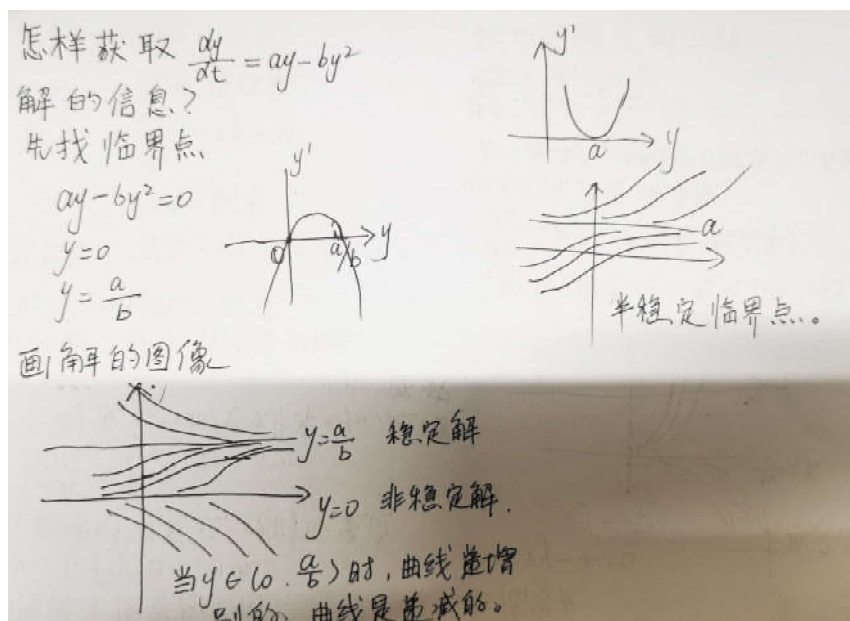 怎样获取 dy/dt = ay-by²
解的信息?
先找临界点
ay-by²=0
y=0
y=a/b
y'
O
a/b
y
y'
a
y
a
半稳定临界点。
画解的图像
y=a/b 稳定解
y=0 非稳定解.
当y∈(0.a/b)时,曲线递增
别的、曲线是递减的。